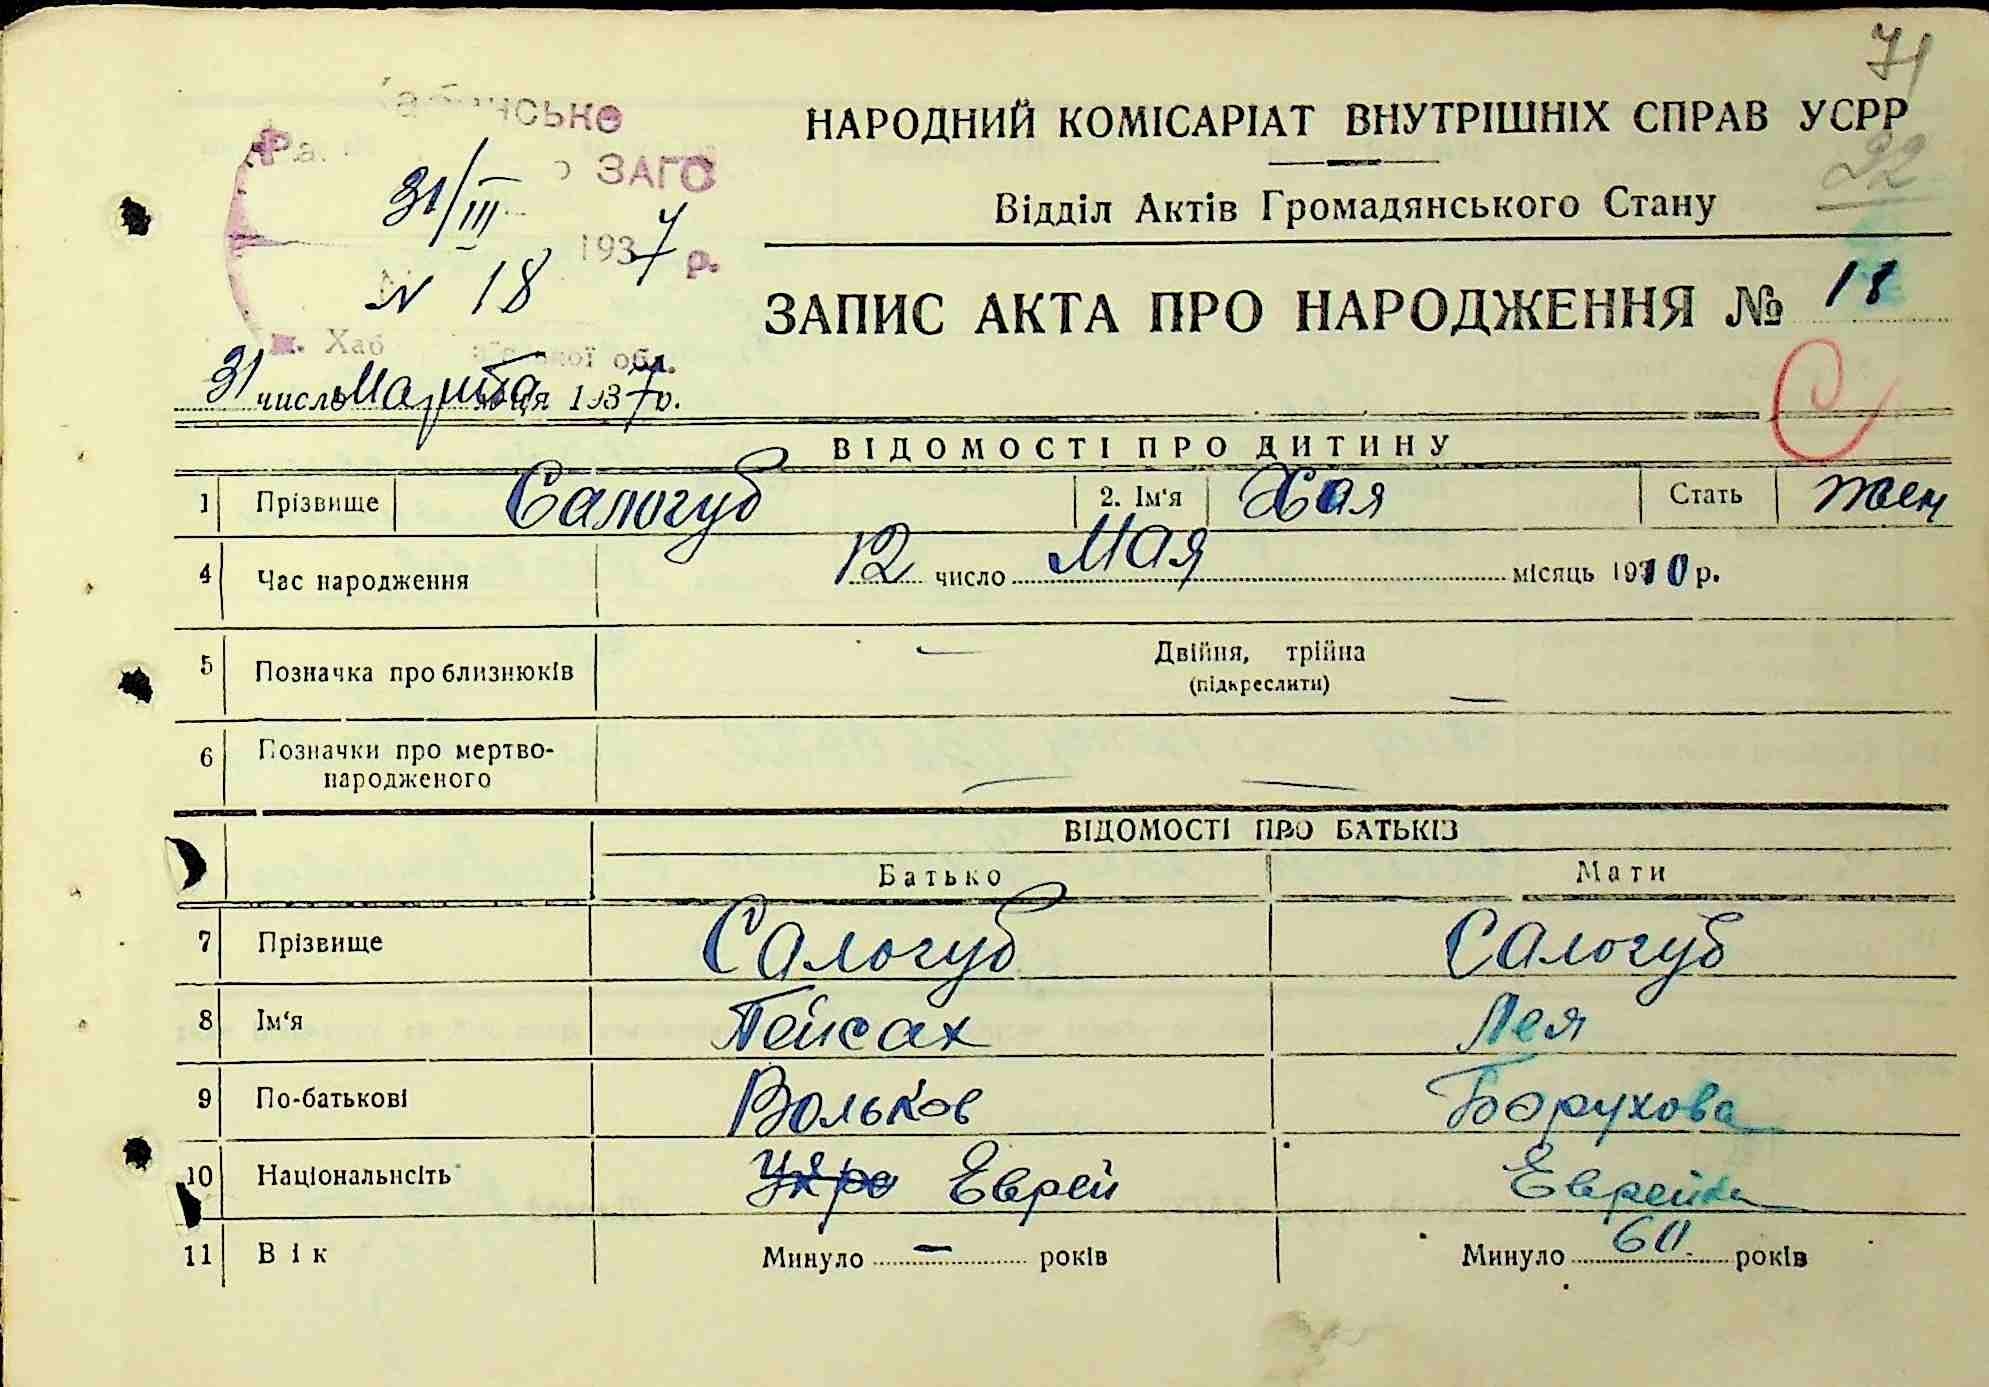 71
НАРОДНИЙ КОМІСАРІАТ ВНУТРІШНІХ СПРАВ УСРР
22
Відділ Актів Громадянського Стану
ЗАГС
31/III 1937 р.
N 18
м. Хаб обл.
ЗАПИС АКТА ПРО НАРОДЖЕННЯ № 18
31 число Марта місяця 1937 р.
С
ВІДОМОСТІ ПРО ДИТИНУ
1 Прізвище Салогуб 2. Ім'я Хая Стать жен
4 Час народження 12 число Мая місяць 1910 р.
5 Позначка про близнюків — Двійня, трійна —
(підкреслити)
6 Позначки про мертво-
народженого — —
ВІДОМОСТІ ПРО БАТЬКІВ
Батько Мати
7 Прізвище Салогуб Салогуб
8 Ім'я Пейсах Лея
9 По-батькові Вольков Борухова
10 Національнсіть Укра Еврей Еврейка
11 Вік Минуло — років Минуло 60 років